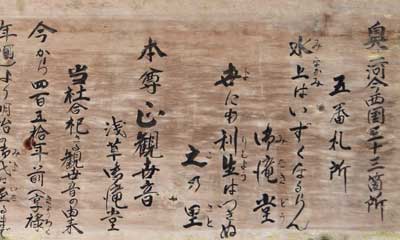 奥三河今西国三十三箇所
五番札所
水上はいずくなるらん
御滝堂
世にわ利生はつきぬ
之の里
本尊正観世音
浅草御滝堂
当社合祀の観世音の由来
今から四百五拾年前(永禄
年間)より明治